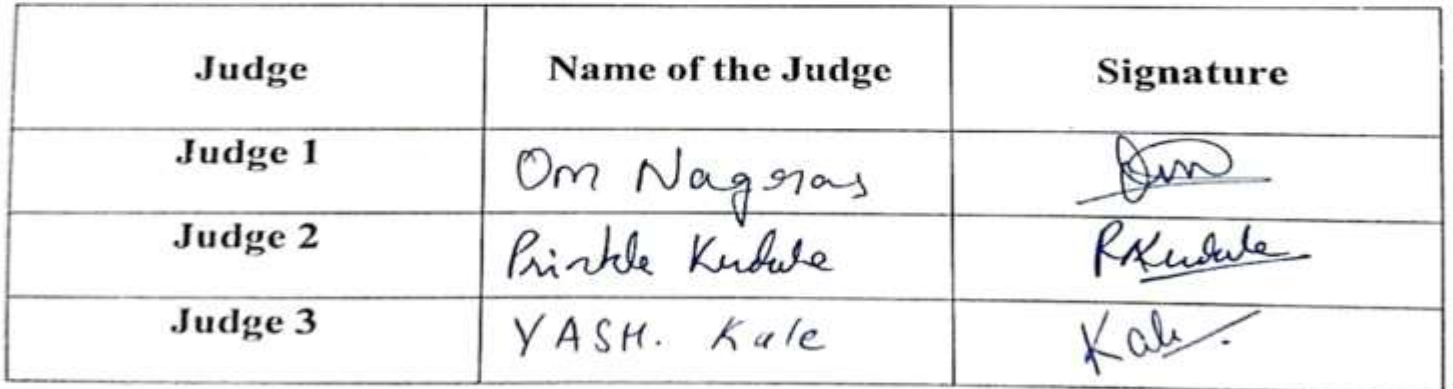 Judge Name of the Judge Signature
Judge 1 Om Nagras
Judge 2 Kudale RKudale
Judge 3 YASH. Kale Kale